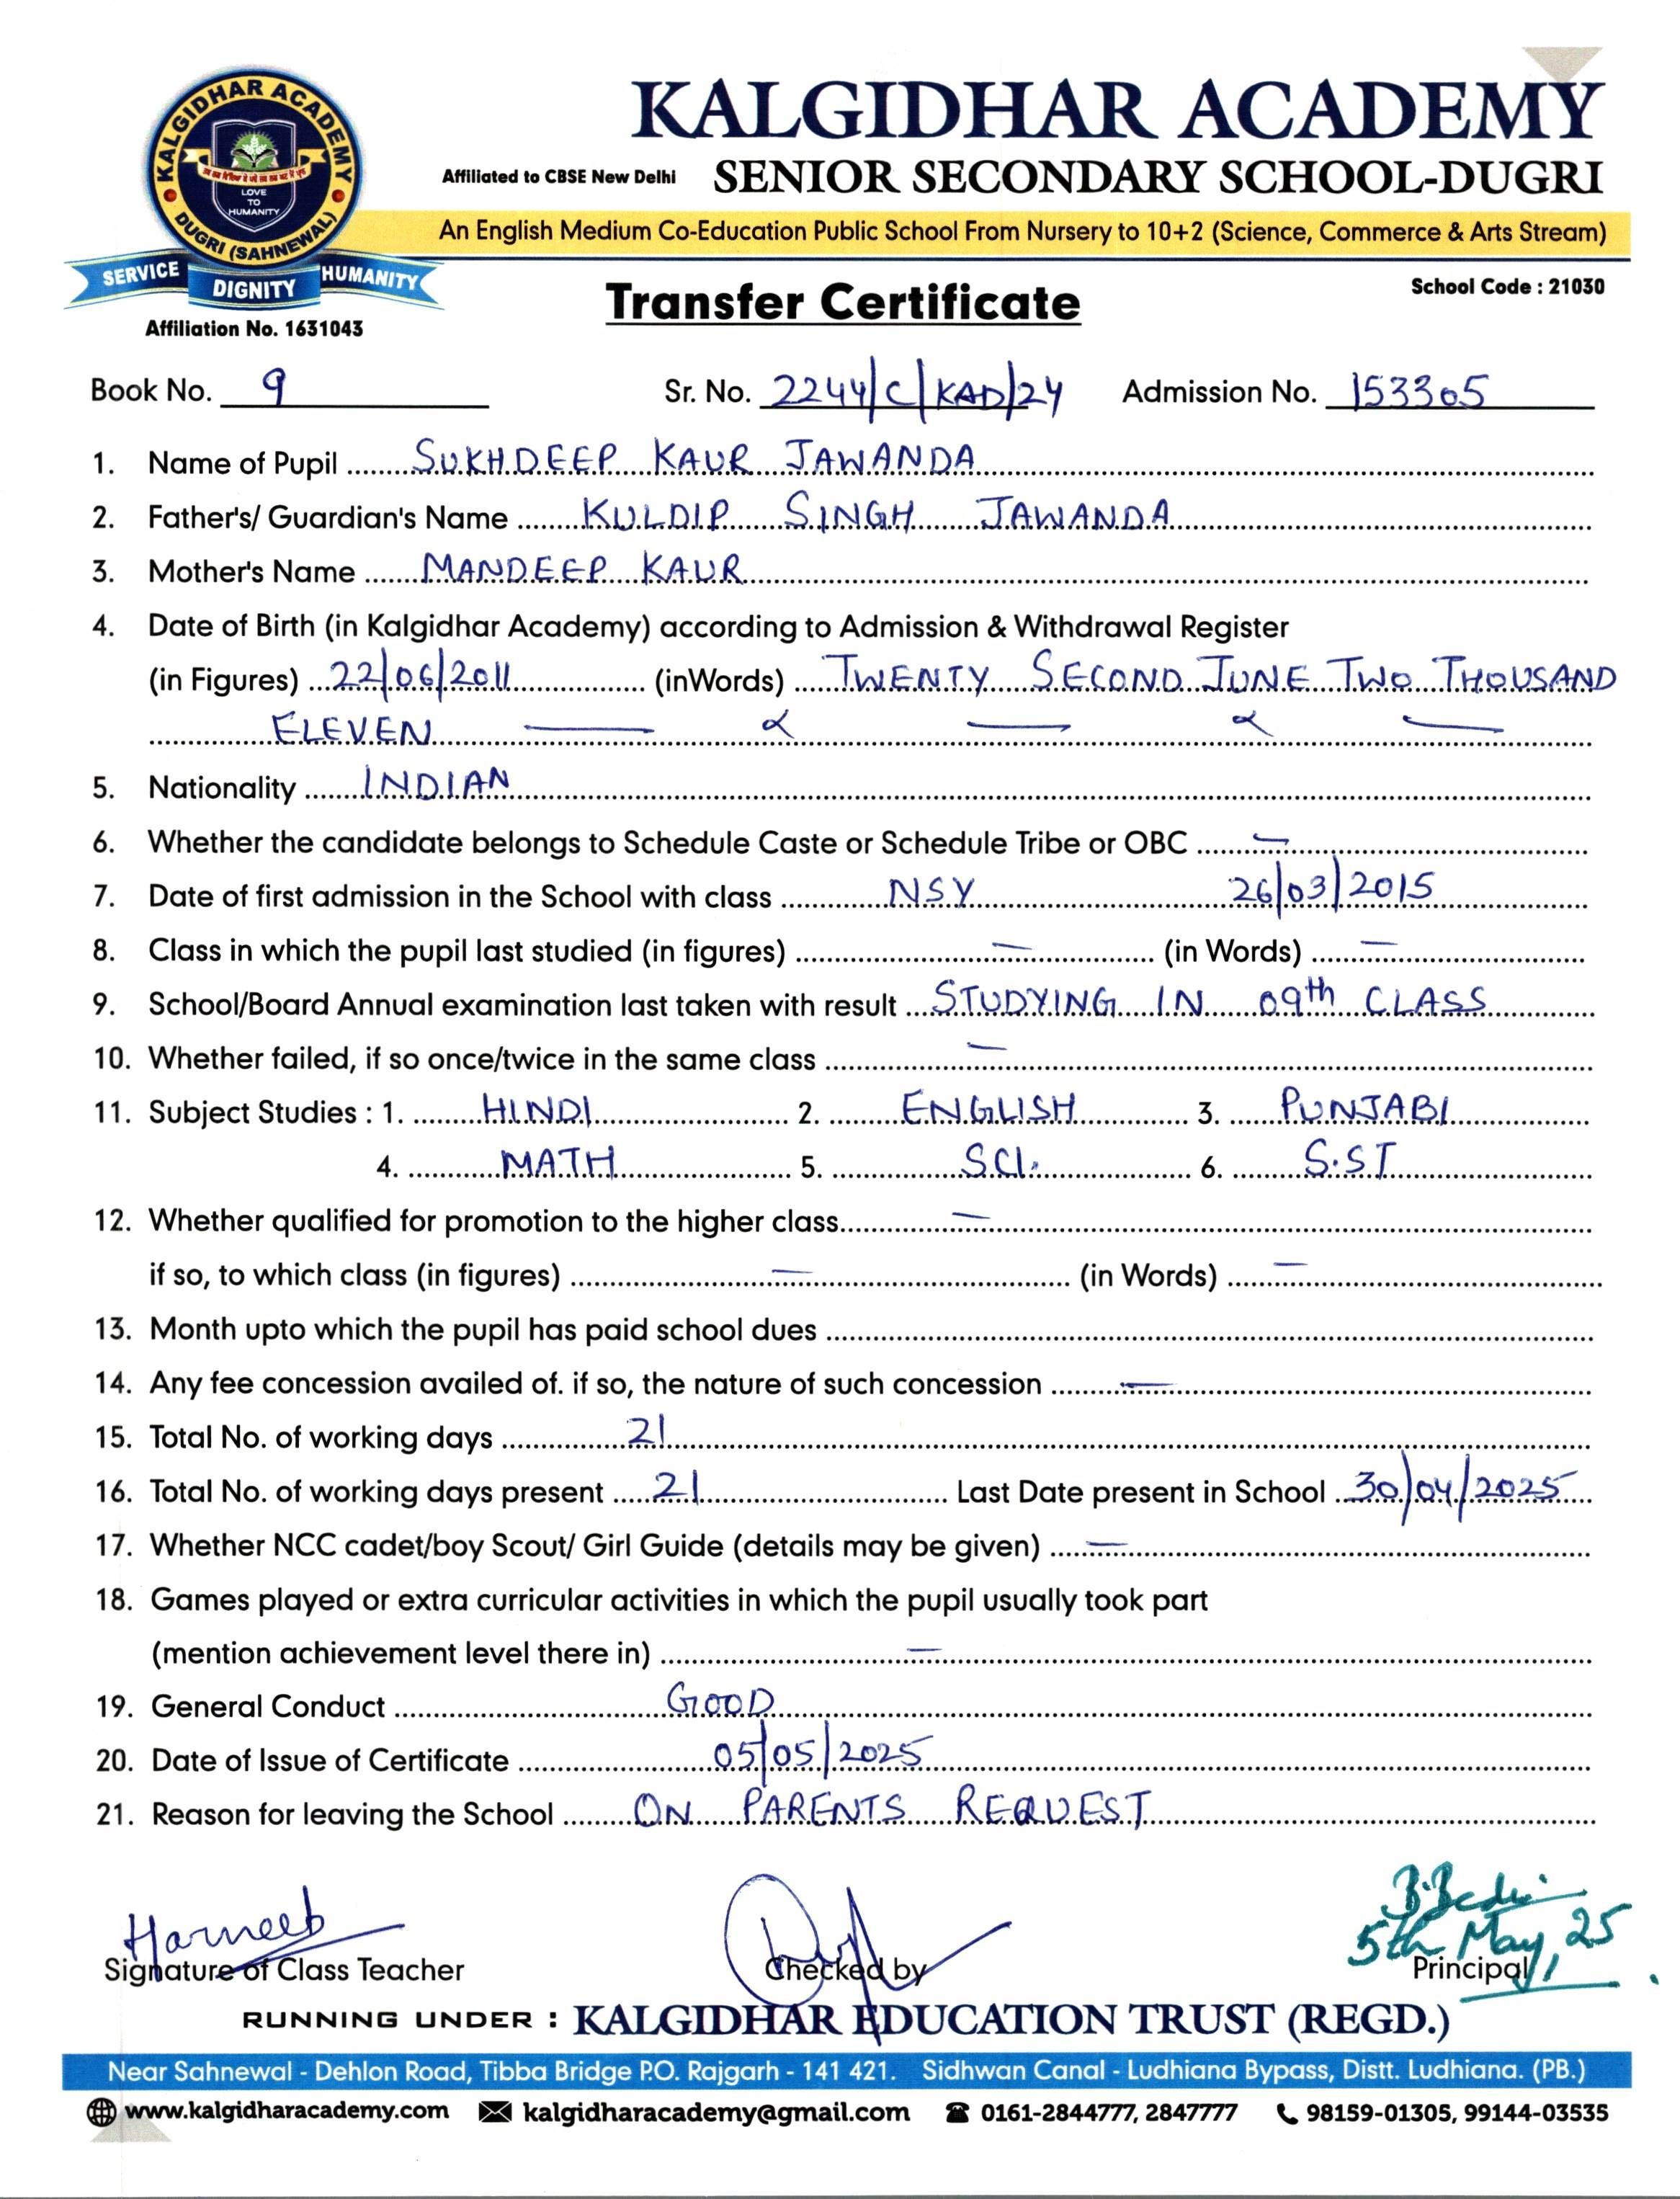 KALGIDHAR ACADEMY
DUGRI (SAHNEWAL)
LOVE
TO
HUMANITY
SERVICE DIGNITY HUMANITY
KALGIDHAR ACADEMY
Affiliated to CBSE New Delhi SENIOR SECONDARY SCHOOL-DUGRI
An English Medium Co-Education Public School From Nursery to 10+2 (Science, Commerce & Arts Stream)
School Code : 21030
Transfer Certificate
Affiliation No. 1631043
Book No. 9 Sr. No. 2244/C/KAD/24 Admission No. 153305
1. Name of Pupil SUKHDEEP KAUR JAWANDA
2. Father's/ Guardian's Name KULDIP SINGH JAWANDA
3. Mother's Name MANDEEP KAUR
4. Date of Birth (in Kalgidhar Academy) according to Admission & Withdrawal Register
(in Figures) 22/06/2011 (inWords) TWENTY SECOND JUNE TWO THOUSAND
ELEVEN
5. Nationality INDIAN
6. Whether the candidate belongs to Schedule Caste or Schedule Tribe or OBC —
7. Date of first admission in the School with class NSY 26/03/2015
8. Class in which the pupil last studied (in figures) — (in Words) —
9. School/Board Annual examination last taken with result STUDYING IN 09th CLASS
10. Whether failed, if so once/twice in the same class —
11. Subject Studies : 1. HINDI 2. ENGLISH 3. PUNJABI
4. MATH 5. SCI. 6. S.ST
12. Whether qualified for promotion to the higher class —
if so, to which class (in figures) — (in Words) —
13. Month upto which the pupil has paid school dues
14. Any fee concession availed of. if so, the nature of such concession —
15. Total No. of working days 21
16. Total No. of working days present 21 Last Date present in School 30/04/2025
17. Whether NCC cadet/boy Scout/ Girl Guide (details may be given) —
18. Games played or extra curricular activities in which the pupil usually took part
(mention achievement level there in) —
19. General Conduct GOOD
20. Date of Issue of Certificate 05/05/2025
21. Reason for leaving the School ON PARENTS REQUEST
B.Bedi
5th May, 25
Signature of Class Teacher Checked by Principal
RUNNING UNDER : KALGIDHAR EDUCATION TRUST (REGD.)
Near Sahnewal - Dehlon Road, Tibba Bridge P.O. Rajgarh - 141 421. Sidhwan Canal - Ludhiana Bypass, Distt. Ludhiana. (PB.)
www.kalgidharacademy.com kalgidharacademy@gmail.com 0161-2844777, 2847777 98159-01305, 99144-03535